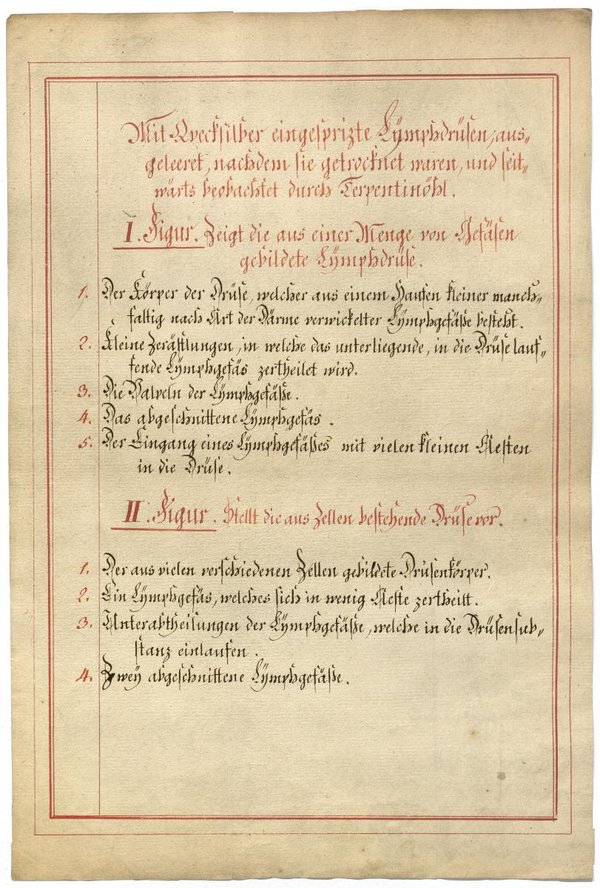 Mit Quecksilber eingesprizte Lÿmphdrüsen, aus=
geleeret, nachdem sie getrocknet waren, und seit=
wärts beobachtet durch Terpentinöhl.
I. Figur. Zeigt die aus einer Menge von Gefäsen
gebildete Lÿmphdrüse.
1. Der Körper der Drüse, welcher aus einem Haufen kleiner manch=
faltig nach Art der Därme verwickelter Lÿmphgefäße besteht.
2. Kleine Zerästlungen, in welche das unterliegende, in die Drüse lauf=
fende Lÿmphgefäs zertheilet wird.
3. Die Valveln der Lÿmphgefäße.
4. Das abgeschnittene Lÿmphgefäs.
5. Der Eingang eines Lÿmphgefäßes mit vielen kleinen Aesten
in die Drüse.
II. Figur. Stellt die aus Zellen bestehende Drüse vor.
1. Der aus vielen verschiedenen Zellen gebildete Drüsenkörper.
2. Ein Lÿmphgefäs, welches sich in wenig Aeste zertheilt.
3. Unterabtheilungen der Lÿmphgefäße, welche in die Drüsensub=
stanz einlaufen.
4. Zweÿ abgeschnittene Lÿmphgefäße.